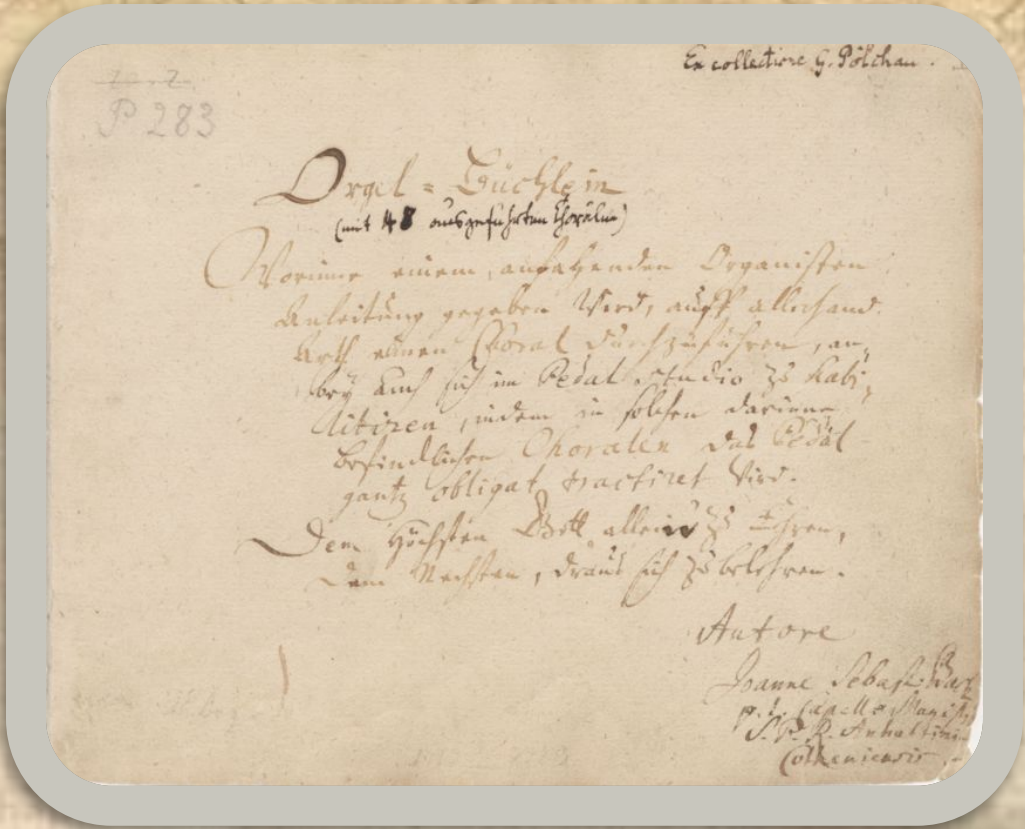 Ex collectione G. Pölchau.
P 283
Orgel = Büchlein
(mit 48 ausgeführten Chorälen)
Worinne einem anfahenden Organisten
Anleitung gegeben wird, auff allerhand
Arth einen Choral durchzuführen, an-
bey auch sich im Pedal studio zu habi-
litiren, indem in solchen darinne
befindlichen Choralen das Pedal
gantz obligat tractiret wird.
Dem Höchsten Gott allein zu Ehren,
Dem Nechsten, draus sich zu belehren.
Autore
Joanne Sebast. Bach
p. t. Capellæ Magistro
S. P. R. Anhaltini-
Cotheniensis.